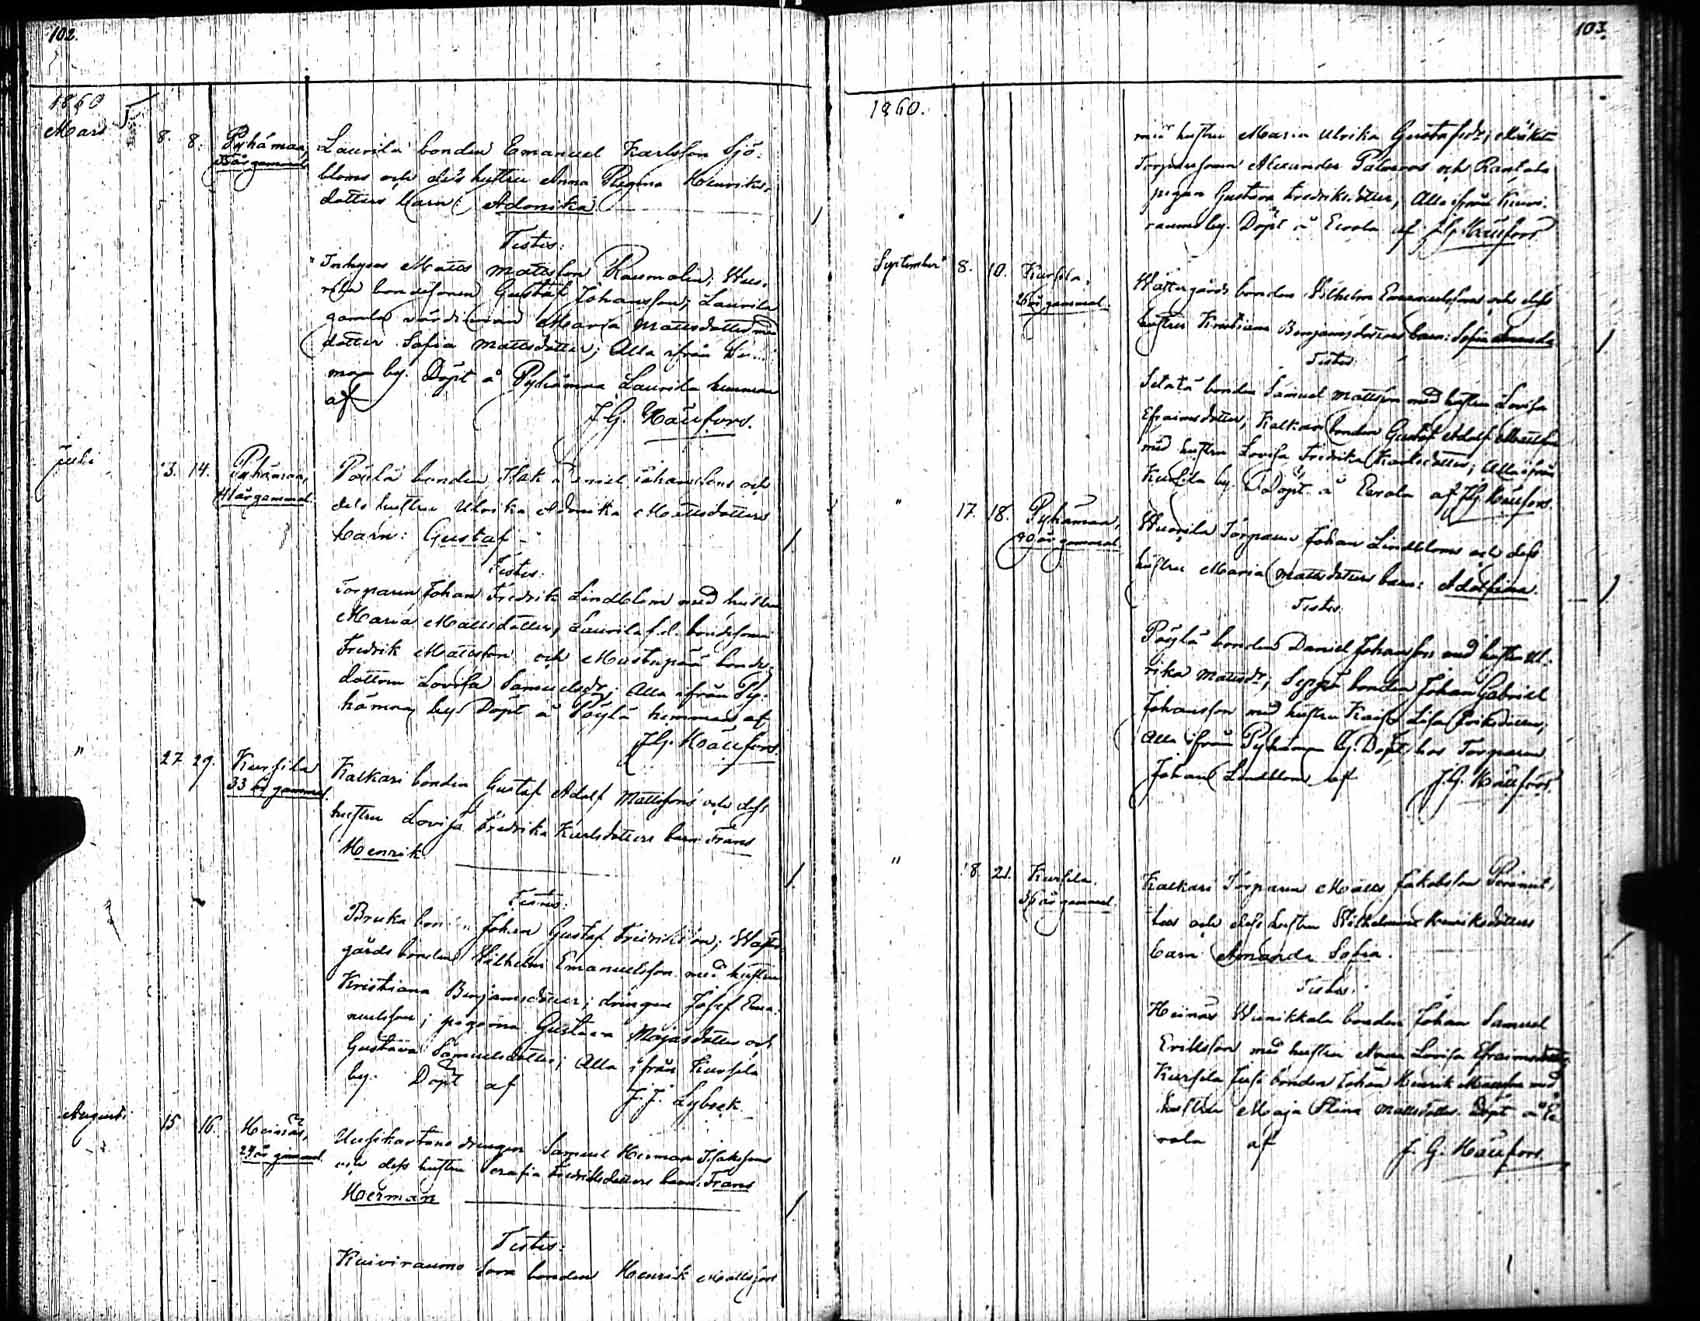 102.
1860
Mars 8. 8. Pyhämaa, Laurila bonden Emanuel Karlsson Sjö-
år gammal. bloms och dess hustru Anna Regina Henriks-
dotters barn: Adonika
Testes:
Inhyses Matts Mattsson Raumolin;
bondesonen Gustaf Johansson; Laurila
gamla värdinnan Maria Mattsdotter med
dotter Sofia Mattsdotter; Alla ifrån
by. Döpt å Pyhämaa Laurila hemman
af
J. G. Häufors.
Juli 13. 14. Pyhämaa, Pöylä bonden Isak Daniel Johanssons och
41 år gammal. dess hustru Ulrika Adonika Mattsdotters
barn: Gustaf
Testes:
Torparen Johan Fredrik Lindblom med hustru
Maria Mattsdotter, Laurila f.d. bondesonen
Fredrik Mattsson och bonde-
dottern Lovisa Samuelsdr; Alla ifrån Py-
hämaa by. Döpt å Pöylä hemman af
J. G. Häufors
" 27 29. Kursila Kalkari bonden Gustaf Adolf Mattssons och dess
33 år gammal. hustru Lovisa Fredrika Karlsdotters barn: Frans
Henrik
Testes:
Bruka Johan Gustaf Fredriksson; Watter-
gårds bonden Wilhelm Emanuelsson med hustru
Kristiana Benjamsdotter; drängen Josef Ema-
nuelsson; pigorna Gustava Majasdotter och
Gustava Samuelsdotter; Alla ifrån Kursila
by. Döpt af J. J. Lybeck
Augusti 15 16. Heinäs, Uusikartano drängen Samuel Herman Isakssons
29 år gammal och dess hustru Serafia Fredriksdotters barn: Frans
Herman
Testes:
Kuivirauma bonden Henrik Mattsson
103.
1860.
med hustru Maria Ulrika Gustafsdr;
Torparesonen Alexander Palmroos och Rantala
pigan Gustava Fredriksdotter, Alla ifrån Kuivi-
rauma by. Döpt å Erola af J. G. Häufors
September 8. 10. Kursila, Wattergårds bonden Wilhelm Emanuelssons och dess
26 år gammal. hustru Kristiana Benjamsdotters barn: Sofia Amanda
Testes
bonden Samuel Mattsson med hustru Lovisa
Efraimsdotter; Kalkari bonden Gustaf Adolf Mattsson
med hustru Lovisa Fredrika Karlsdotter; Alla ifrån
Kursila by. Döpt å Erola af J. G. Häufors.
" 17. 18. Pyhämaa, Wuorila Torparen Johan Lindbloms och dess
40 år gammal. hustru Maria Mattsdotters barn: Adolfina.
Testes:
Pöylä bonden Daniel Johansson med hustru Ul-
rika Mattsdr; Seppä bonden Johan Gabriel
Johansson med hustru Kaisa Lisa Eriksdotter;
Alla ifrån Pyhämaa by. Döpt hos Torparen
Johan Lindblom af J. G. Häufors.
" 18. 21. Kursila. Kalkari Torparen Matts Jakobsson
36 år gammal. och dess hustru Wilhelmina Henriksdotters
barn Amanda Sofia.
Testes:
Heinäs Winikkala bonden Johan Samuel
Eriksson med hustru Anna Lovisa Efraimsdotter;
Kursila Jussi bonden Johan Henrik Mattsson med
hustru Maja Stina Mattsdotter. Döpt å E-
rola af J. G. Häufors.